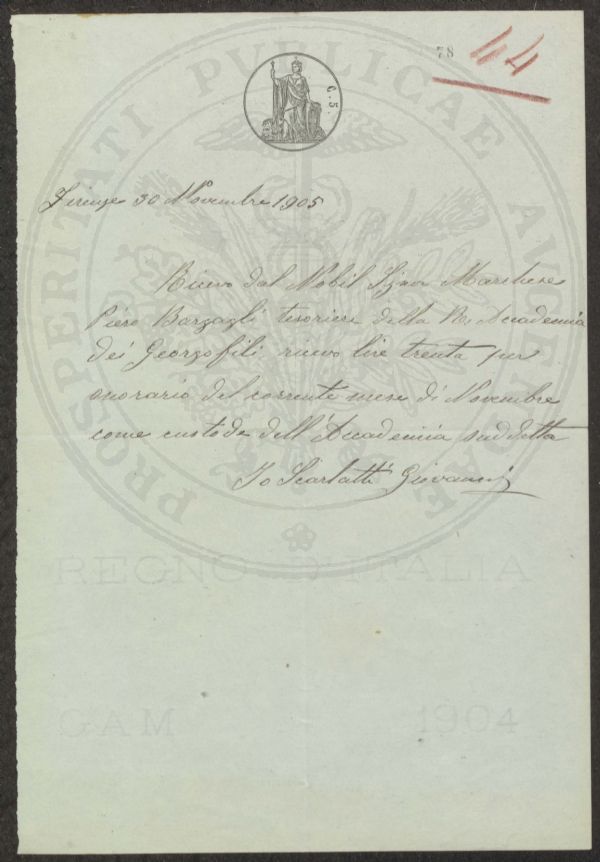 78 44
C. 5.
PROSPERITATI PUBLICAE AUGENDAE
Firenze 30 Novembre 1905
Ricevo dal Nobil Sigre Marchese
Piero Barzagli tesoriere della R. Accademia
dei Georgofili ricevo lire trenta per
onorario del corrente mese di Novembre
come custode dell'Accademia suddetta
Io Scarlatti Giovanni
REGNO D'ITALIA
GAM 1904